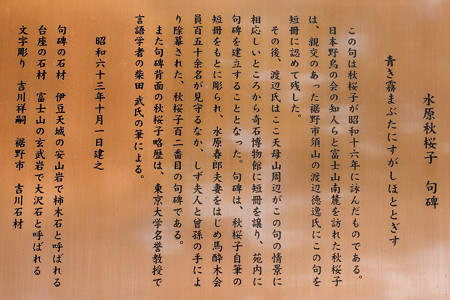 水原秋桜子　句碑
青き霧まぶたにすがしほととぎす
この句は秋桜子が昭和十六年に詠んだものである。
日本野鳥の会の知人らと富士山南麓を訪れた秋桜子
は、親交のあった裾野市須山の渡辺徳逸氏にこの句を
短冊に認めて残した。
その後、渡辺氏はここ天母山周辺がこの句の情景に
相応しいところから奇石博物館に短冊を譲り、苑内に
句碑を建立することとなった。句碑は、秋桜子自筆の
短冊をもとに彫られ、水原春郎夫妻をはじめ馬酔木会
員百五十余名が見守るなか、しず夫人と曾孫の手によ
り除幕された、秋桜子百二番目の句碑である。
また句碑背面の秋桜子略歴は、東京大学名誉教授で
言語学者の柴田　武氏の筆による。
昭和六十三年十月一日建之
句碑の石材　伊豆天城の安山岩で柿木石と呼ばれる
台座の石材　富士山の玄武岩で大沢石と呼ばれる
文字彫り　吉川祥嗣　裾野市　吉川石材